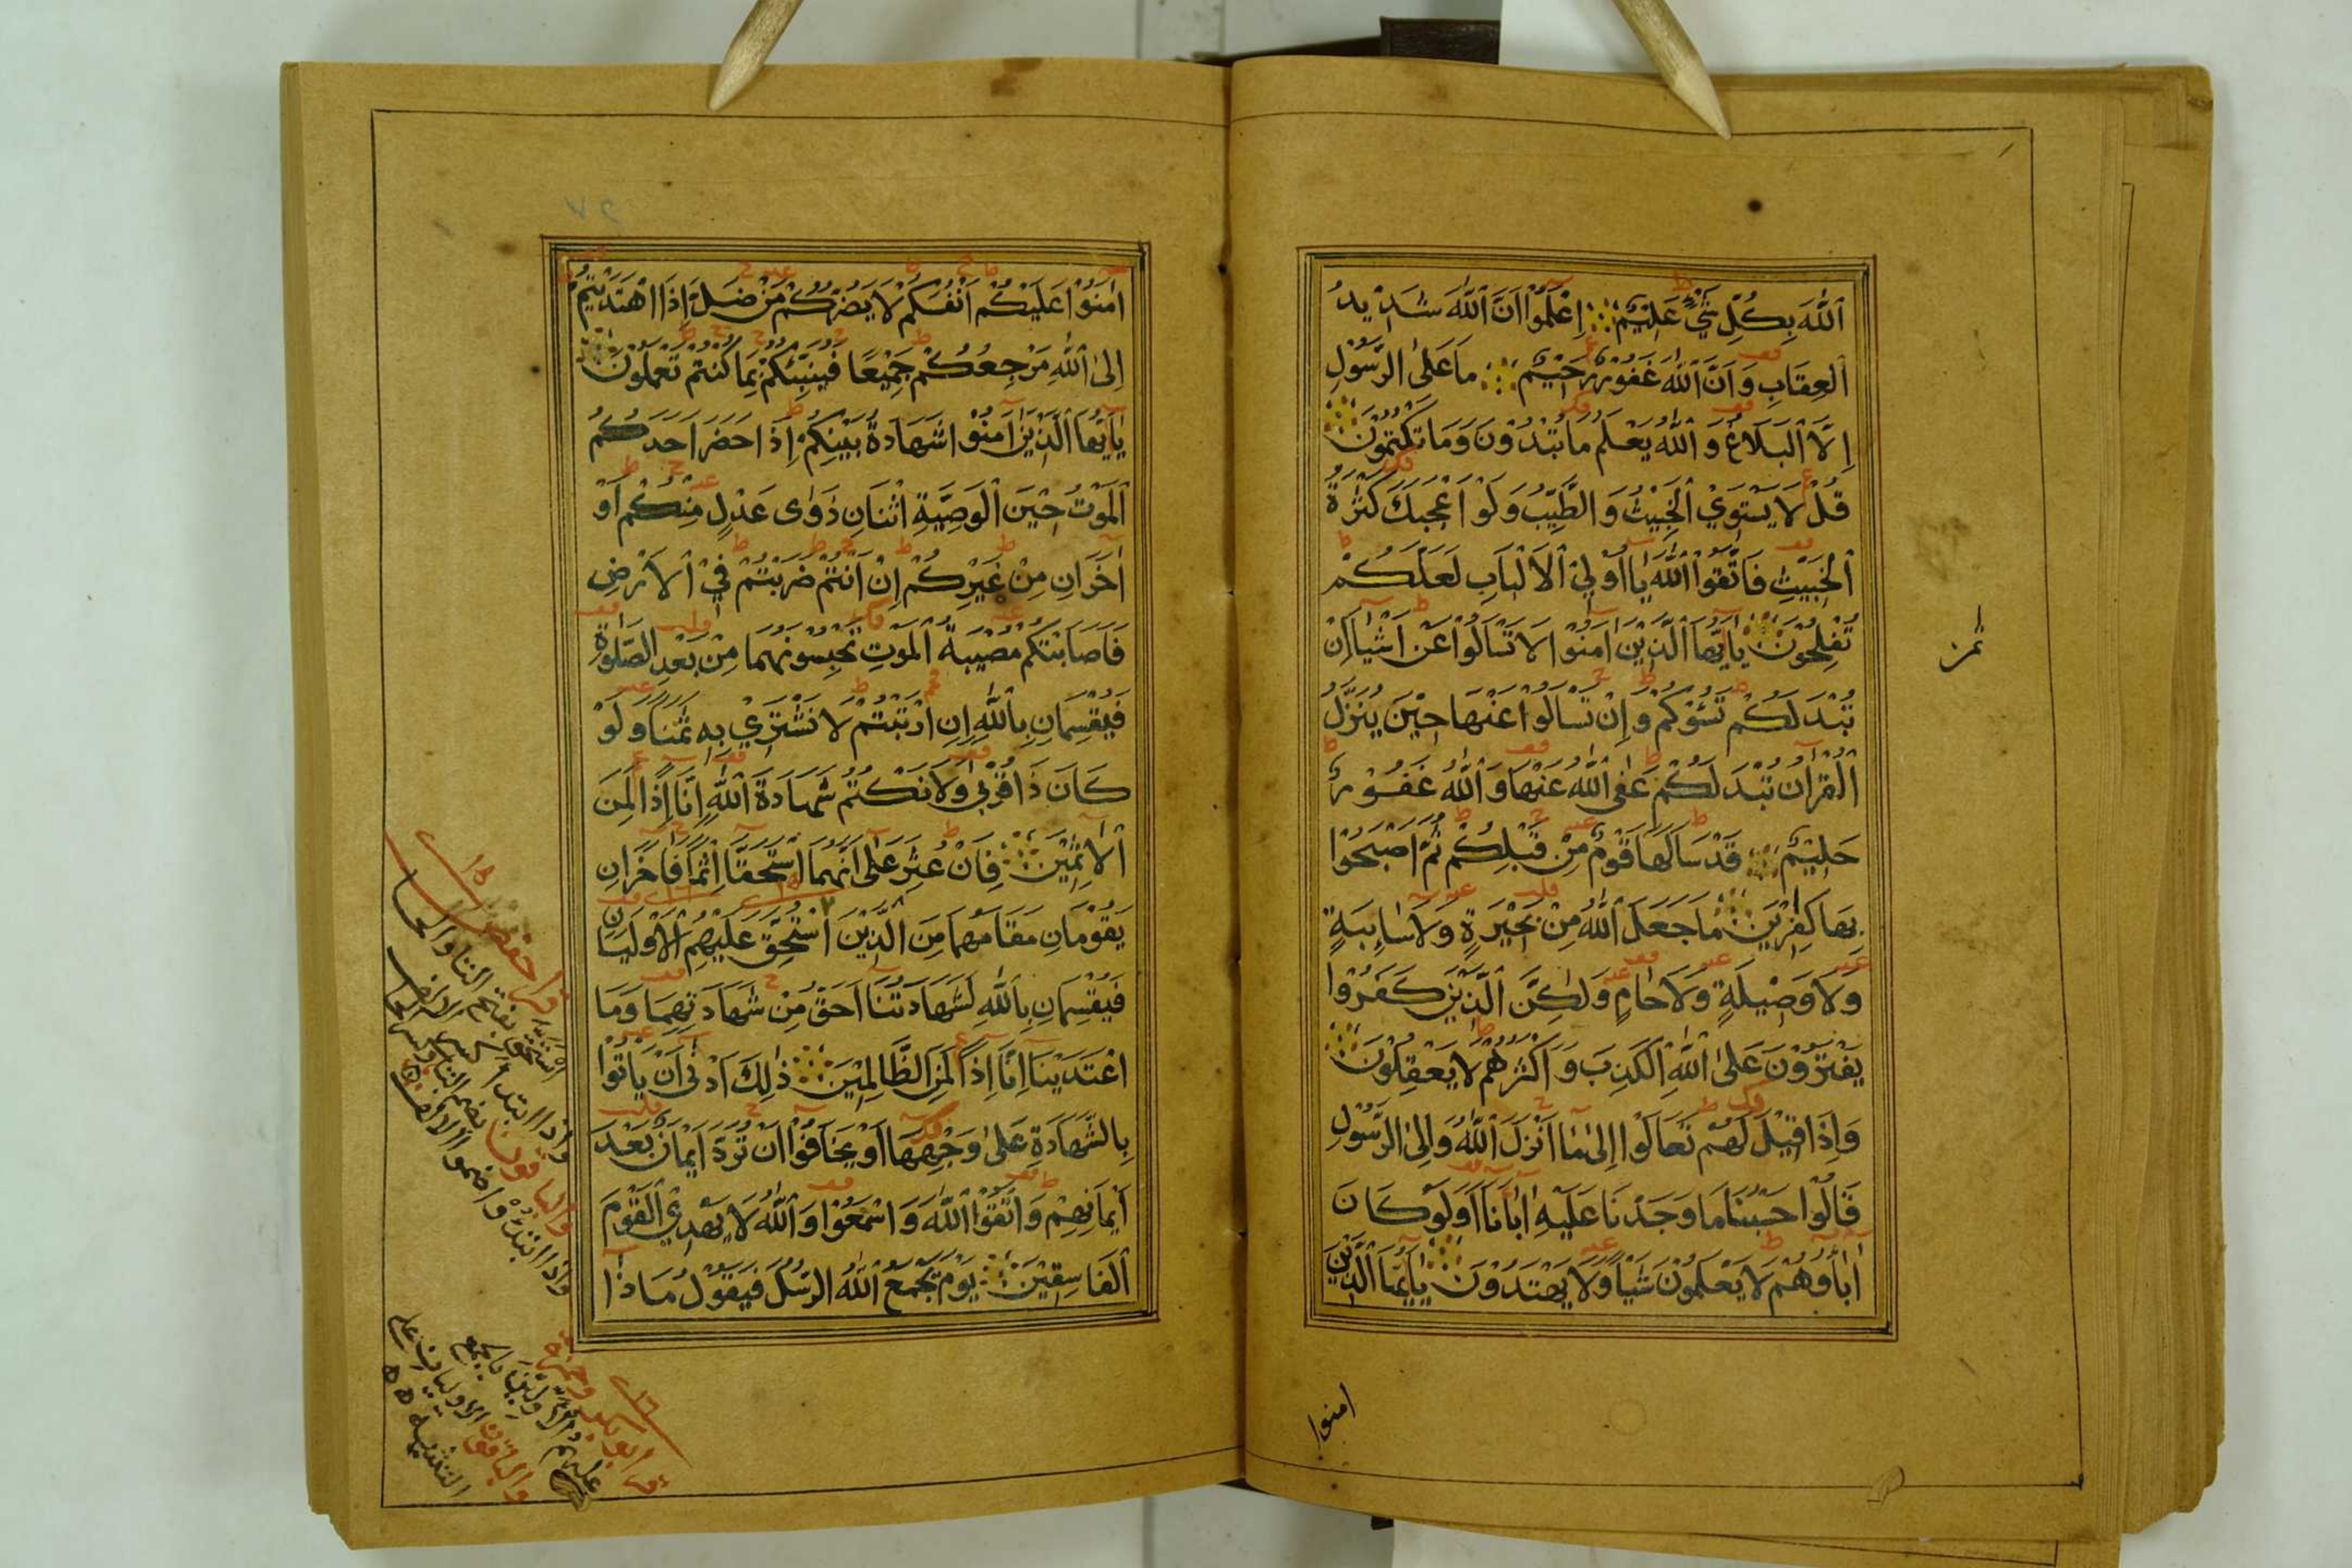 اَللّٰهَ بِكُلِّ شَيْءٍ عَلِيْمٌ اِعْلَمُوْا اَنَّ اللّٰهَ شَدِيْدُ
الْعِقَابِ وَاَنَّ اللّٰهَ غَفُوْرٌ رَحِيْمٌ مَا عَلَى الرَّسُوْلِ
اِلَّا الْبَلَاغُ وَ اللّٰهُ يَعْلَمُ مَا تُبْدُوْنَ وَمَا تَكْتُمُوْنَ
قُلْ لَا يَسْتَوِيْ الْخَبِيْثُ وَ الطَّيِّبُ وَلَوْ اَعْجَبَكَ كَثْرَةُ
الْخَبِيْثِ فَاتَّقُوْا اللّٰهَ يَا اُوْلِيْ الْاَلْبَابِ لَعَلَّكُمْ
تُفْلِحُوْنَ يَا اَيُّهَا الَّذِيْنَ اٰمَنُوْا لَا تَسْاَلُوْا عَنْ اَشْيَا اِنْ
تُبْدَ لَكُمْ تَسُؤْكُمْ وَ اِنْ تَسْاَلُوْا عَنْهَا حِيْنَ يُنَزَّلُ
الْقُرْاٰنُ تُبْدَ لَكُمْ عَفَى اللّٰهُ عَنْهَا وَ اللّٰهُ غَفُوْرٌ
حَلِيْمٌ قَدْ سَاَلَهَا قَوْمٌ مِنْ قَبْلِكُمْ ثُمَّ اَصْبَحُوْا
بِهَا كٰفِرِيْنَ مَا جَعَلَ اللّٰهُ مِنْ بَحِيْرَةٍ وَ لَا سَاىِٕبَةٍ
وَ لَا وَصِيْلَةٍ وَ لَا حَامٍ وَلٰكِنَّ الَّذِيْنَ كَفَرُوْا
يَفْتَرُوْنَ عَلَى اللّٰهِ الْكَذِبَ وَ اَكْثَرُهُمْ لَا يَعْقِلُوْنَ
وَ اِذَا قِيْلَ لَهُمْ تَعَالَوْا اِلٰى مَا اَنْزَلَ اللّٰهُ وَ اِلَى الرَّسُوْلِ
قَالُوْا حَسْبُنَا مَا وَجَدْنَا عَلَيْهِ اٰبَانَا اَوَلَوْ كَانَ
اٰبَاؤُهُمْ لَا يَعْلَمُوْنَ شَيْاً وَ لَا يَهْتَدُوْنَ يٰاَيُّهَا الَّذِيْنَ
ثمن
امنوا
اٰمَنُوْا عَلَيْكُمْ اَنْفُسَكُمْ لَا يَضُرُّكُمْ مَنْ ضَلَّ اِذَا اهْتَدَيْتُمْ
اِلَى اللّٰهِ مَرْجِعُكُمْ جَمِيْعًا فَيُنَبِّئُكُمْ بِمَا كُنْتُمْ تَعْمَلُوْنَ
يٰاَيُّهَا الَّذِيْنَ اٰمَنُوْا شَهَادَةُ بَيْنِكُمْ اِذَا حَضَرَ اَحَدَكُمُ
الْمَوْتُ حِيْنَ الْوَصِيَّةِ اثْنَانِ ذَوَاى عَدْلٍ مِنْكُمْ اَوْ
اٰخَرَانِ مِنْ غَيْرِكُمْ اِنْ اَنْتُمْ ضَرَبْتُمْ فِيْ الْاَرْضِ
فَاَصَابَتْكُمْ مُصِيْبَةُ الْمَوْتِ تَحْبِسُوْنَهُمَا مِنْ بَعْدِ الصَّلٰوةِ
فَيُقْسِمَانِ بِاللّٰهِ اِنِ ارْتَبْتُمْ لَا نَشْتَرِيْ بِهِ ثَمَنًا وَ لَوْ
كَانَ ذَا قُرْبٰى وَ لَا نَكْتُمُ شَهَادَةَ اللّٰهِ اِنَّا اِذًا لَمِنَ
الْاٰثِمِيْنَ فَاِنْ عُثِرَ عَلٰى اَنَّهُمَا اسْتَحَقَّا اِثْمًا فَاٰخَرَانِ
يَقُوْمَانِ مَقَامَهُمَا مِنَ الَّذِيْنَ اسْتُحِقَّ عَلَيْهِمُ الْاَوْلَيَانِ
فَيُقْسِمَانِ بِاللّٰهِ لَشَهَادَتُنَا اَحَقُّ مِنْ شَهَادَتِهِمَا وَمَا
اعْتَدَيْنَا اِنَّا اِذًا لَمِنَ الظَّالِمِيْنَ ذٰلِكَ اَدْنٰى اَنْ يَاْتُوْا
بِالشَّهَادَةِ عَلٰى وَجْهِهَا اَوْ يَخَافُوْا اَنْ تُرَدَّ اَيْمَانٌ بَعْدَ
اَيْمَانِهِمْ وَ اتَّقُوْا اللّٰهَ وَ اسْمَعُوْا وَ اللّٰهُ لَا يَهْدِيْ الْقَوْمَ
الْفَاسِقِيْنَ يَوْمَ يَجْمَعُ اللّٰهُ الرُّسُلَ فَيَقُوْلُ مَاذَا
قرا حفص
استحق بفتح التا والحا
واذا ابتدا
والباقون بضم التا وكسر الحا
واذا ابتدؤا ضموا الالف
قرا ابو بكر وحمزة
عليهم الاولين بالجمع
والباقون الاوليان على
التثنية